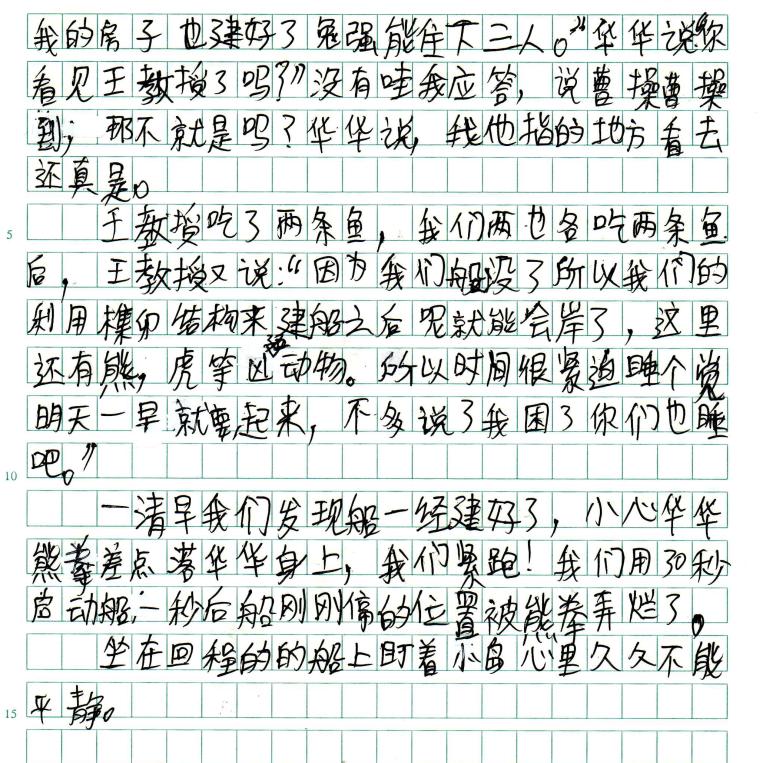 我的房子也建好了勉强能住下三人。”华华说“你
看见王教授了吗？”没有哇我应答，说曹操曹操
到；那不就是吗？华华说，我他指的地方看去
还真是。
王教授吃了两条鱼，我们两也各吃两条鱼
5
后，王教授又说：“因为我们船没了所以我们的
利用榫卯结构来建船之后呢就能会岸了，这里
还有熊，虎等凶恶动物。所以时间很紧迫睡个觉
明天一早就要起来，不多说了我困了你们也睡
吧。”
10
一清早我们发现船一经建好了，小心华华
熊掌差点落华华身上，我们紧跑！我们用30秒
启动船，一秒后船刚刚停的位置被熊拳弄烂了。
坐在回程的的船上盯着小岛心里久久不能
平静。
15